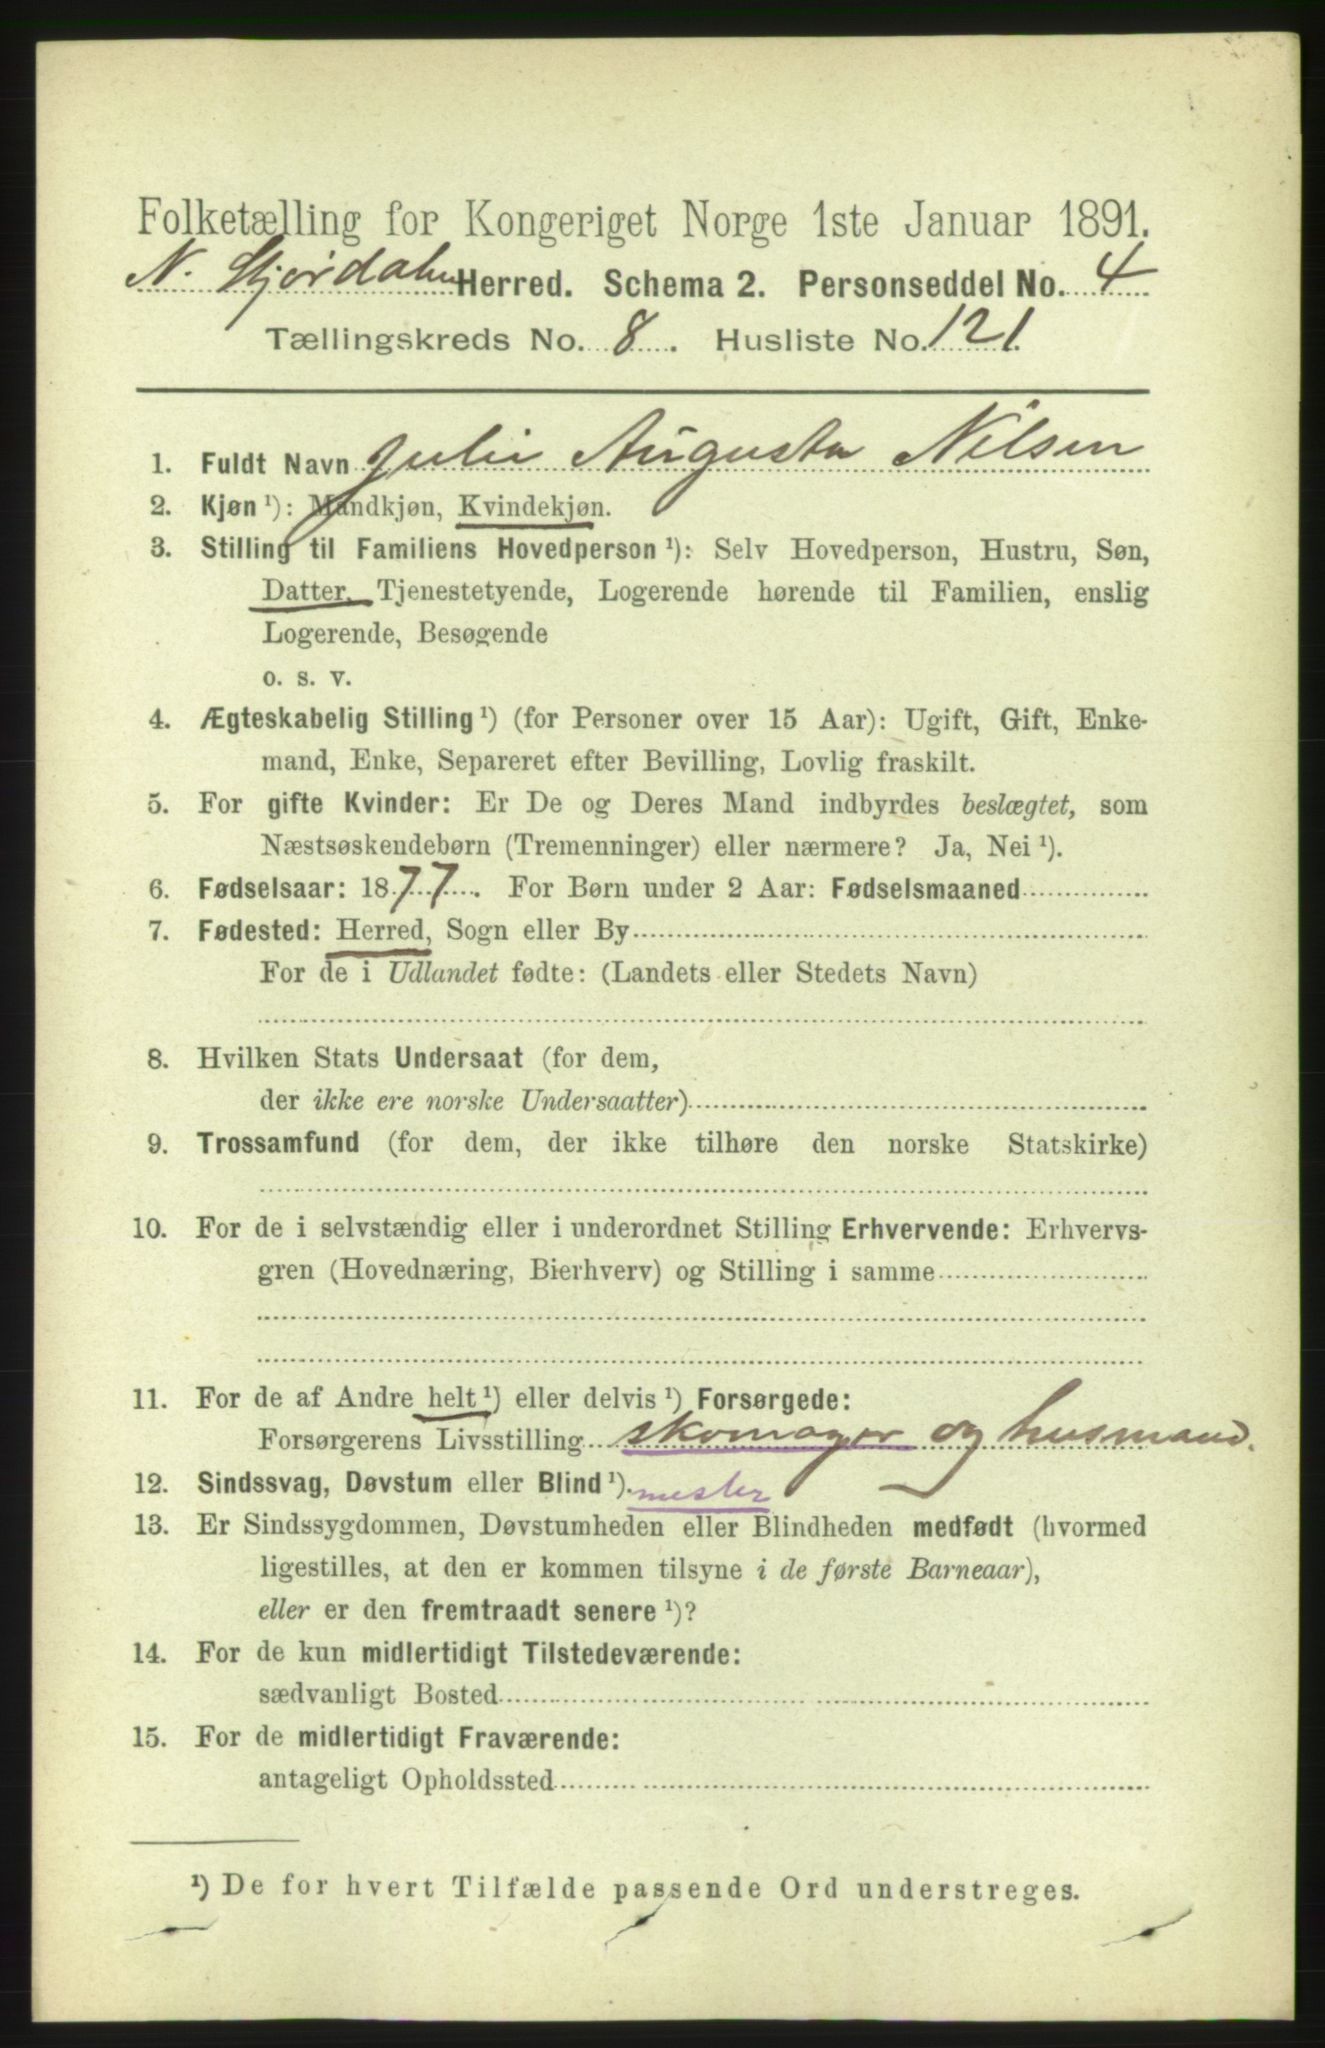 Folketælling for Kongeriget Norge 1ste Januar 1891.
N. Stjørdalen Herred. Schema 2. Personseddel No. 4
Tællingskreds No. 8. Husliste No. 121.
1. Fuldt Navn Julie Augusta Nilsen
2. Kjøn ¹): Mandkjøn, Kvindekjøn.
3. Stilling til Familiens Hovedperson ¹): Selv Hovedperson, Hustru, Søn,
Datter, Tjenestetyende, Logerende hørende til Familien, enslig
Logerende, Besøgende
o. s. v.
4. Ægteskabelig Stilling ¹) (for Personer over 15 Aar): Ugift, Gift, Enke-
mand, Enke, Separeret efter Bevilling, Lovlig fraskilt.
5. For gifte Kvinder: Er De og Deres Mand indbyrdes beslægtet, som
Næstsøskendebørn (Tremenninger) eller nærmere? Ja, Nei ¹).
6. Fødselsaar: 1877. For Børn under 2 Aar: Fødselsmaaned
7. Fødested: Herred, Sogn eller By
For de i Udlandet fødte: (Landets eller Stedets Navn)
8. Hvilken Stats Undersaat (for dem,
der ikke ere norske Undersaatter)
9. Trossamfund (for dem, der ikke tilhøre den norske Statskirke)
10. For de i selvstændig eller i underordnet Stilling Erhvervende: Erhvervs-
gren (Hovednæring, Bierhverv) og Stilling i samme
11. For de af Andre helt ¹) eller delvis ¹) Forsørgede:
Forsørgerens Livsstilling skomager og husmand.
12. Sindssvag, Døvstum eller Blind ¹). mester
13. Er Sindssygdommen, Døvstumheden eller Blindheden medfødt (hvormed
ligestilles, at den er kommen tilsyne i de første Barneaar),
eller er den fremtraadt senere ¹)?
14. For de kun midlertidigt Tilstedeværende:
sædvanligt Bosted
15. For de midlertidigt Fraværende:
antageligt Opholdssted
¹) De for hvert Tilfælde passende Ord understreges.